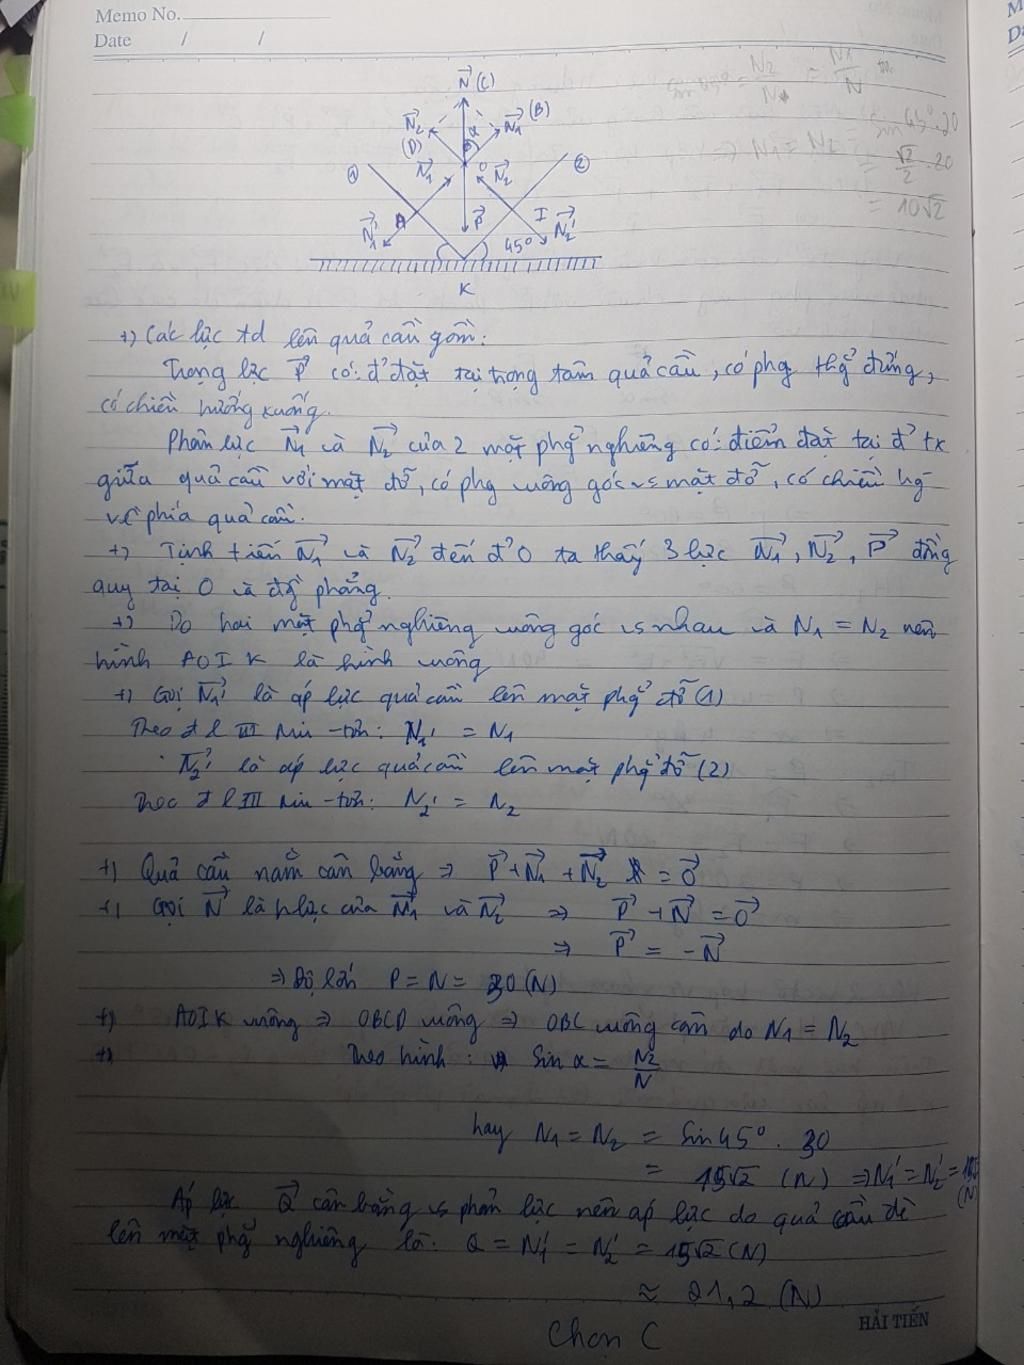 Memo No.
Date / /
N⃗ (C)
N₂⃗ (D)
α
N₁⃗ (B)
①
N₁⃗
O
N₂⃗
②
N₁'⃗
A
P⃗
I
N₂'⃗
45°
K
sin 45° = N₂/N = N₁/N
N₁ = N₂ = sin 45°.20
= √2/2 . 20
= 10√2
+) Các lực td lên quả cầu gồm:
Trọng lực P⃗ có: đ' đặt tại trọng tâm quả cầu, có phg thẳg đứng,
có chiều hướng xuống.
Phản lực N₁⃗ và N₂⃗ của 2 mặt phẳg nghiêng có: điểm đặt tại đ' tx
giữa quả cầu với mặt đỡ, có phg vuông góc vs mặt đỡ, có chiều hg
về phía quả cầu.
+) Tịnh tiến N₁⃗ và N₂⃗ đến đ' O ta thấy 3 lực N₁⃗, N₂⃗, P⃗ đồng
quy tại O và đồg phẳng.
+) Do hai mặt phẳg nghiêng vuông góc vs nhau và N₁ = N₂ nên
hình AOIK là hình vuông
+) Gọi N₁'⃗ là áp lực quả cầu lên mặt phẳg đỡ (1)
Theo đl III Niu-tơn: N₁' = N₁
N₂'⃗ là áp lực quả cầu lên mặt phẳg đỡ (2)
Theo đl III Niu-tơn: N₂' = N₂
+) Quả cầu nằm cân bằng ⇒ P⃗ + N₁⃗ + N₂⃗ = 0⃗
+) Gọi N⃗ là hlực của N₁⃗ và N₂⃗ ⇒ P⃗ + N⃗ = 0⃗
⇒ P⃗ = -N⃗
⇒ Độ lớn P = N = 30 (N)
+) AOIK vuông ⇒ OBCD vuông ⇒ OBC vuông cân do N₁ = N₂
+) Theo hình: sin α = N₂/N
hay N₁ = N₂ = sin 45° . 30
= 15√2 (N) ⇒ N₁' = N₂' = 15√2 (N)
Áp lực Q⃗ cân bằng vs phản lực nên áp lực do quả cầu đè
lên mặt phẳg nghiêng là: Q = N₁' = N₂' = 15√2 (N)
≈ 21,2 (N)
HẢI TIẾN
Chọn C